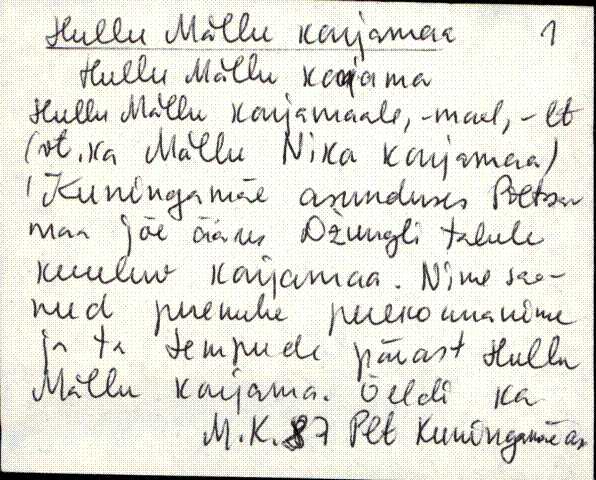 Hullu Mällu karjamaa 1
Hullu Mällu karjama
Hullu Mällu karjamaale, -maal, -lt
(vt. ka Mällu Nika karjamaa)
Kuningamäe asunduses Põltsa-
maa jõe ääres Džungli talule
kuuluv karjamaa. Nime saa-
nud peremehe perekonnanime
ja ta tempude pärast Hullu
Mällu karjama. Öeldi ka
M.K. 87 Plt Kuningamäe as